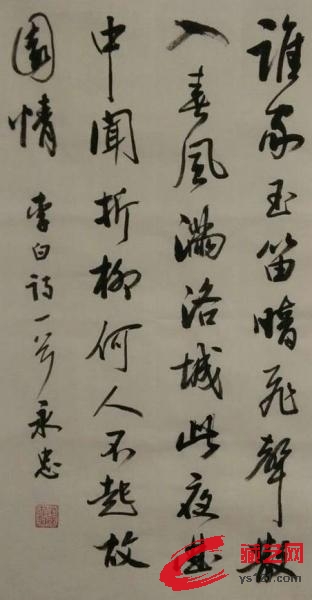 誰家玉笛暗飛聲散
入春風滿洛城此夜曲
中聞折柳何人不起故
園情
李白詩一首 永忠
藏艺网